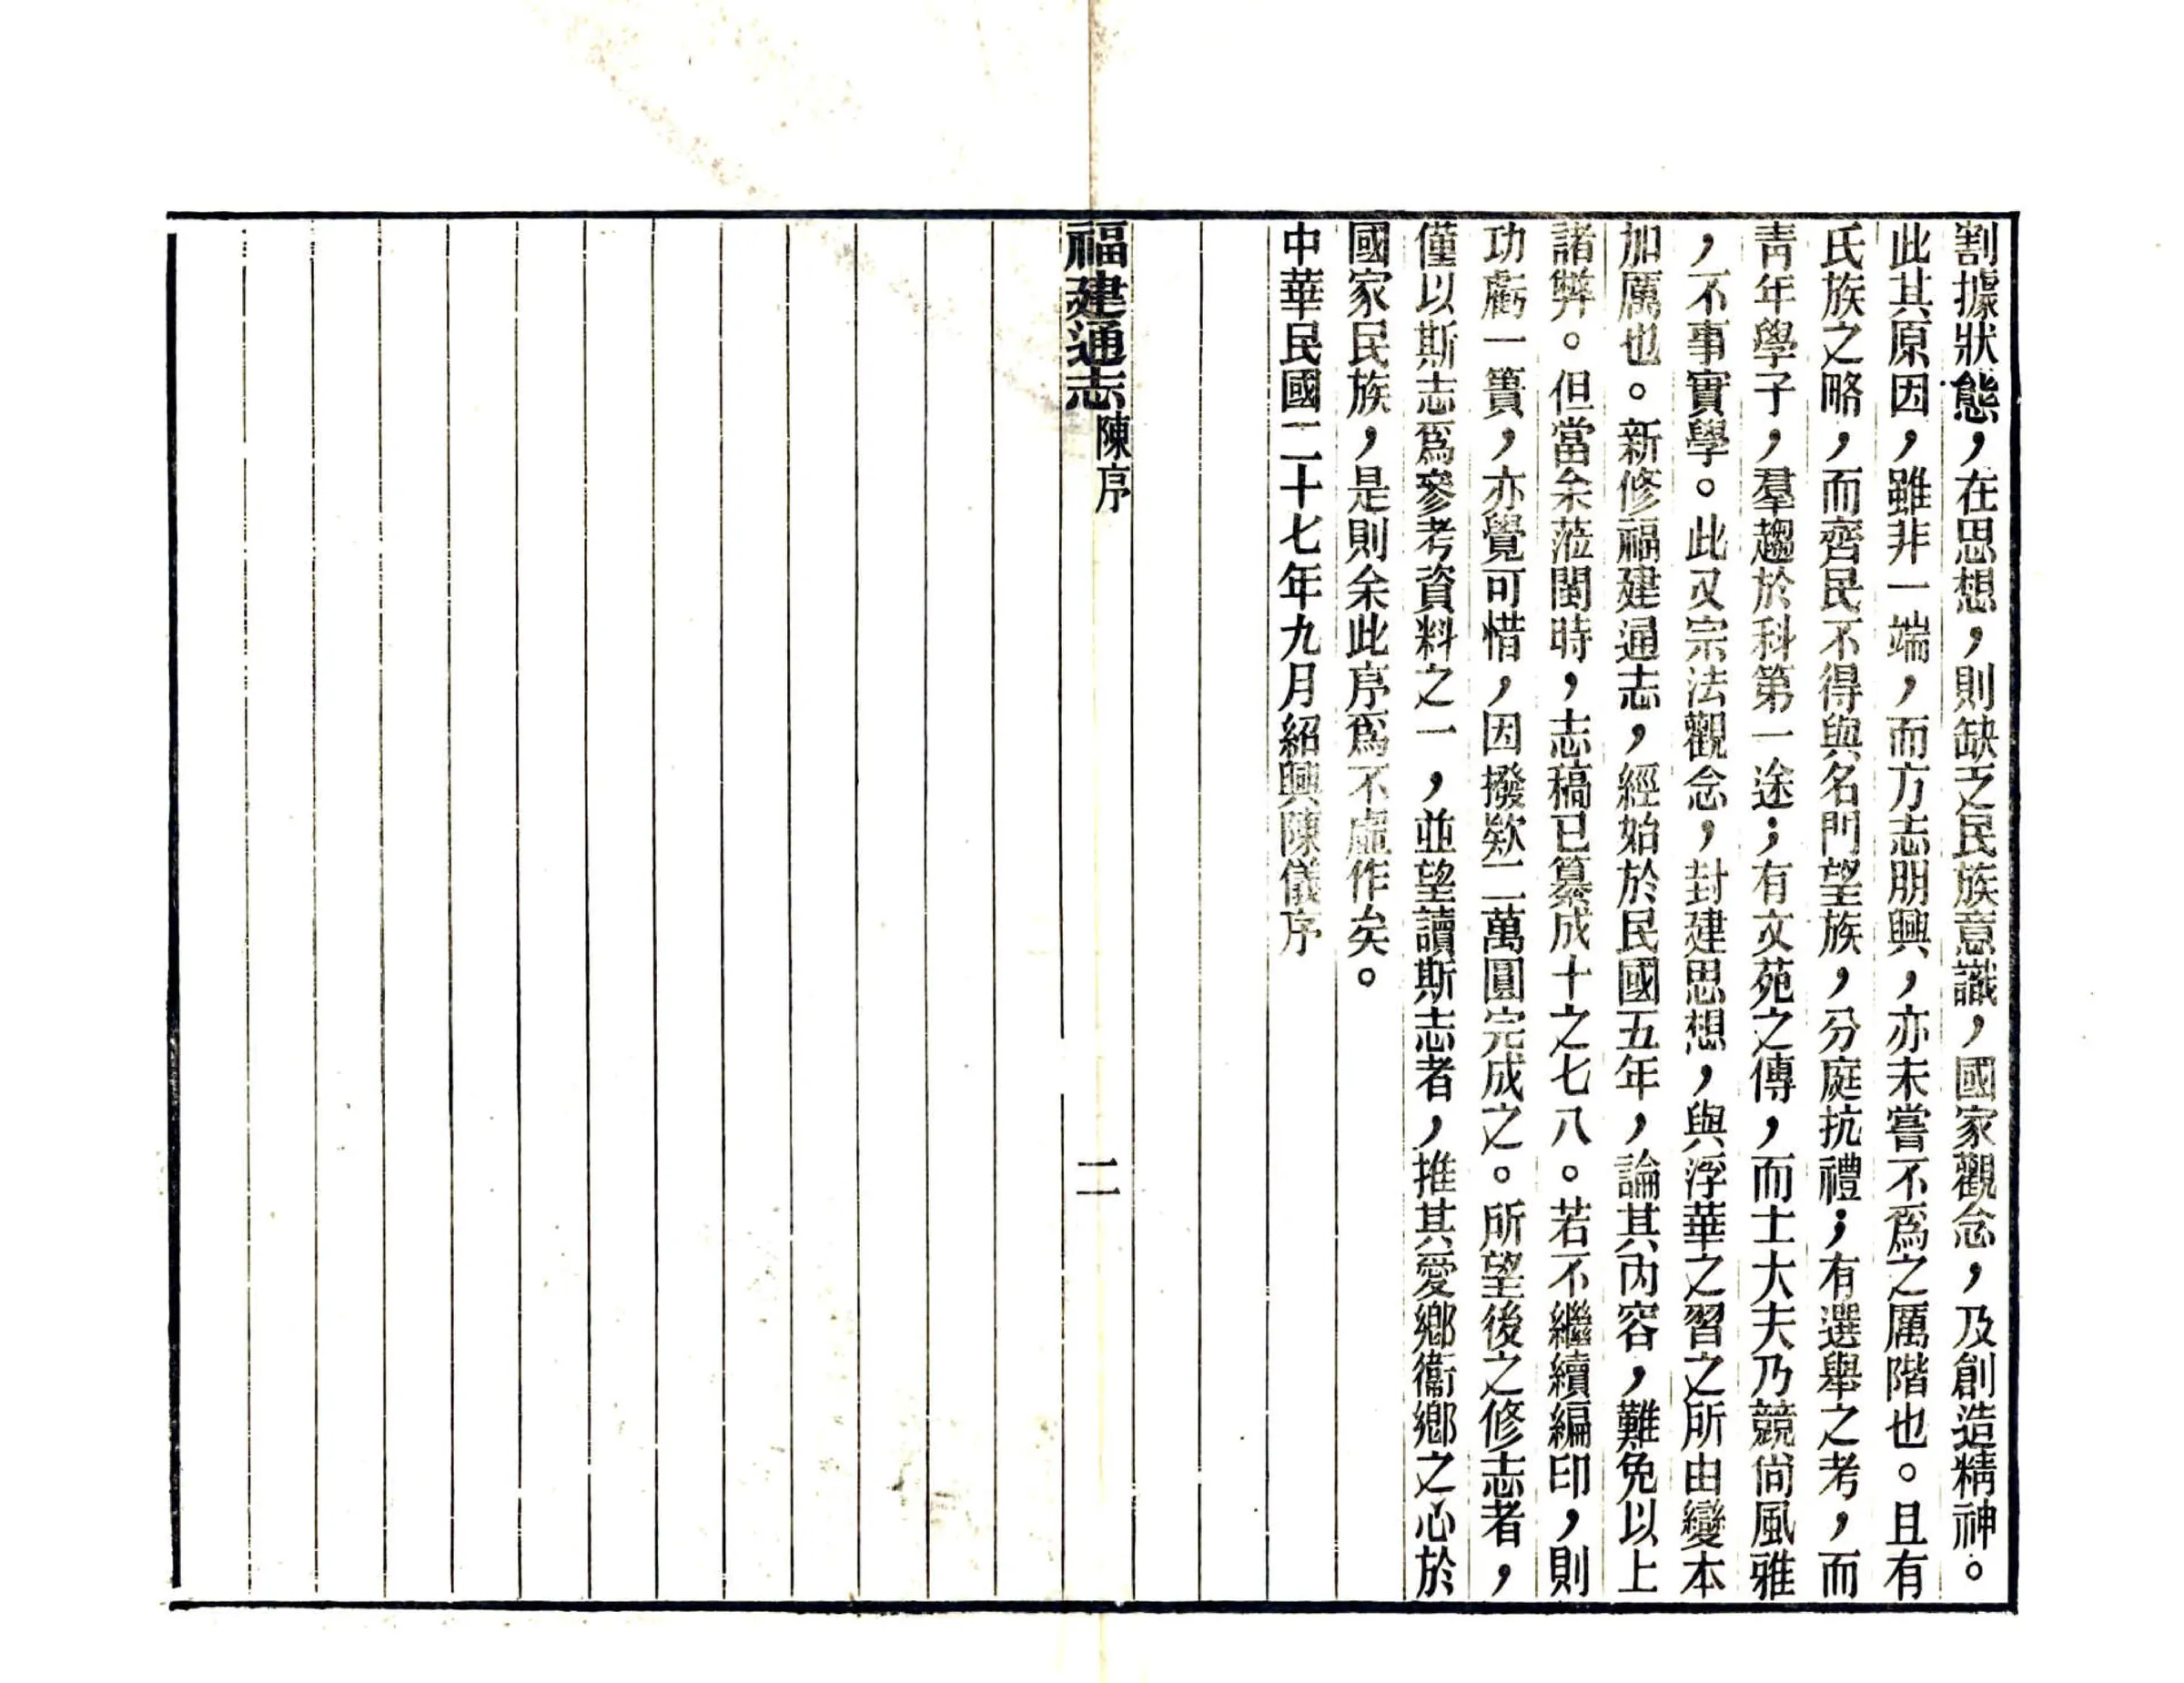 割據狀態，在思想，則缺乏民族意識，國家觀念，及創造精神。
此其原因，雖非一端，而方志朋興，亦未嘗不爲之厲階也。且有
氏族之略，而齊民不得與名門望族，分庭抗禮；有選舉之考，而
靑年學子，羣趨於科第一途；有文苑之傳，而士大夫乃競尙風雅
，不事實學。此又宗法觀念，封建思想，與浮華之習之所由變本
加厲也。新修福建通志，經始於民國五年，論其內容，難免以上
諸弊。但當余蒞閩時，志稿已纂成十之七八。若不繼續編印，則
功虧一簣，亦覺可惜，因撥欵二萬圓完成之。所望後之修志者，
僅以斯志爲參考資料之一，並望讀斯志者，推其愛鄉衞鄉之心於
國家民族，是則余此序爲不虛作矣。
中華民國二十七年九月紹興陳儀序
福建通志陳序
二